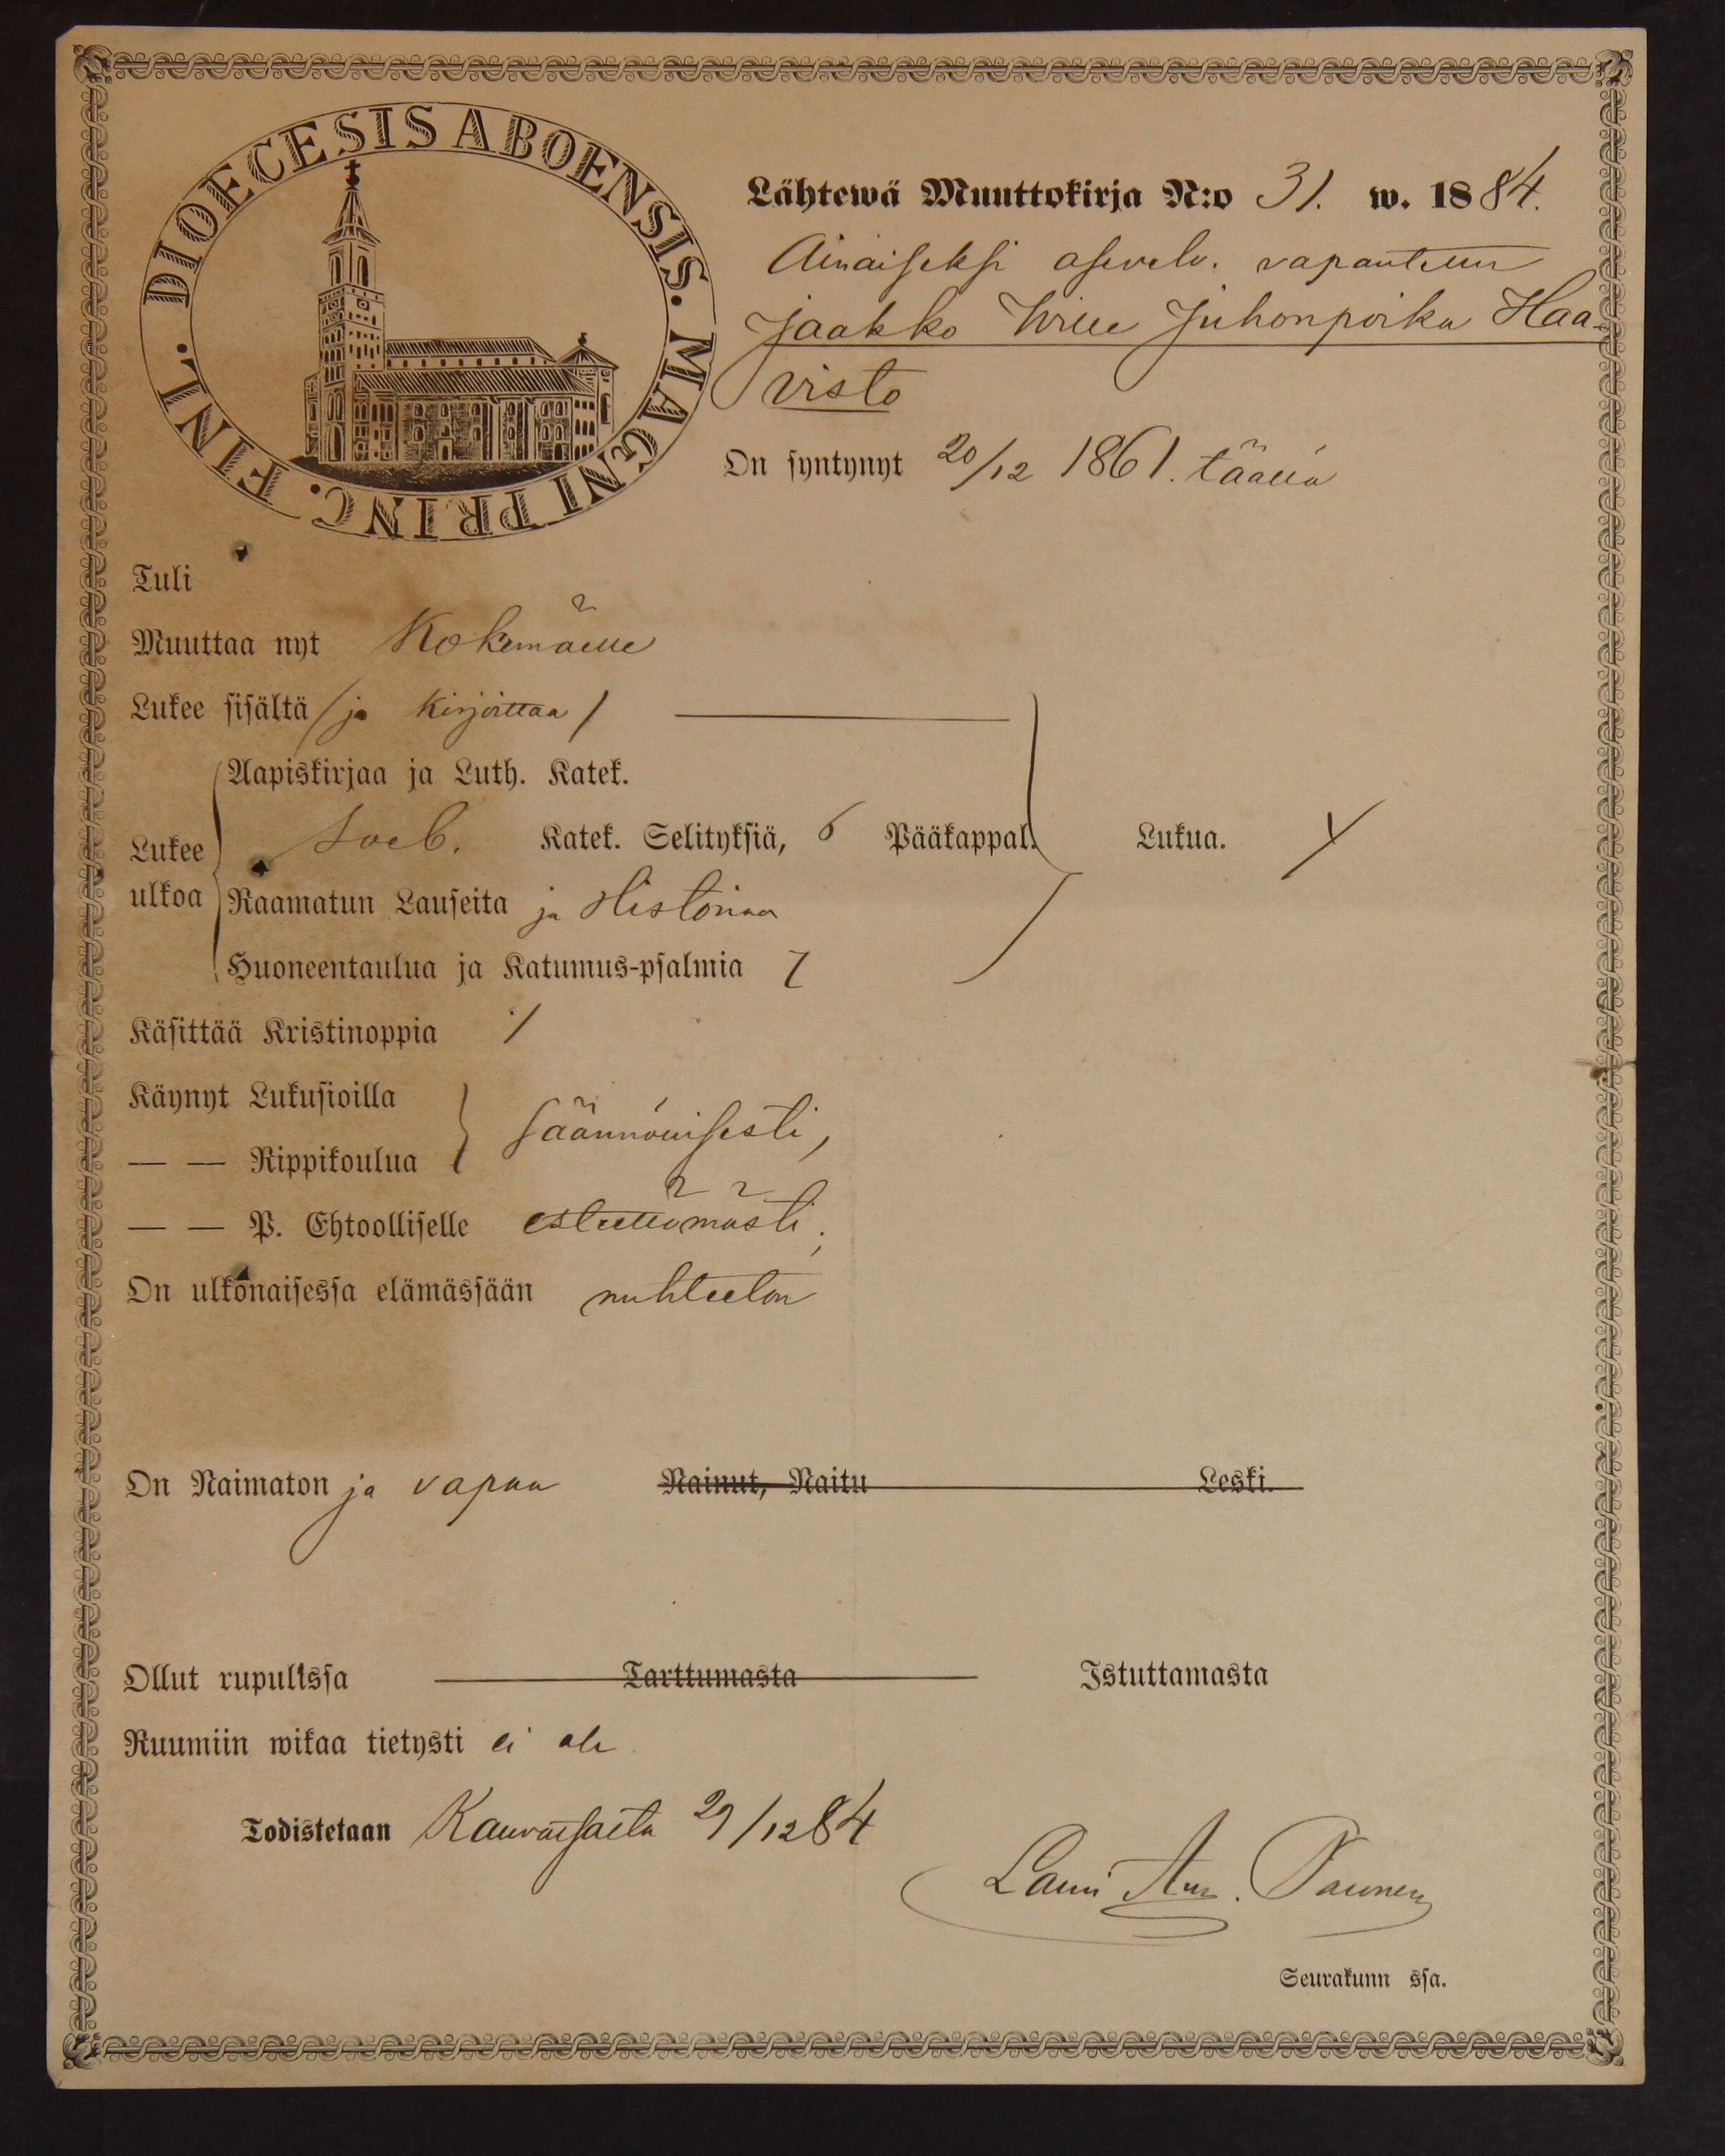 DIOECESIS ABOENSIS. MAGNI PRINC. FINL.
Lähtewä Muuttokirja N:o 31. w. 1884.
Ainaiseksi asevelv. vapautettu
Jaakko Juhonpoika Haa-
visto
On syntynyt 20/12 1861. täällä
Tuli
Muuttaa nyt Kokemäelle
Lukee sisältä (ja kirjoittaa)
Aapiskirjaa ja Luth. Katek.
Lukee ulkoa Sveb. Katek. Selityksiä, 6 Pääkappal. Lukua.
Raamatun Lauseita ja Historiaa
Huoneentaulua ja Katumus-psalmia 7
Käsittää Kristinoppia
Käynyt Lukusioilla
säännöllisesti,
— — Rippikoulua
— — P. Ehtoolliselle esteettömästi;
On ulkonaisessa elämässään nuhteeton
On Naimaton ja vapaa Nainut, Naitu Leski.
Ollut rupulissa Tarttumasta Istuttamasta
Ruumiin wikaa tietysti ei ole
Todistetaan Kauvatsalla 29/12 84
Lauri Paunen
Seurakunn ssa.